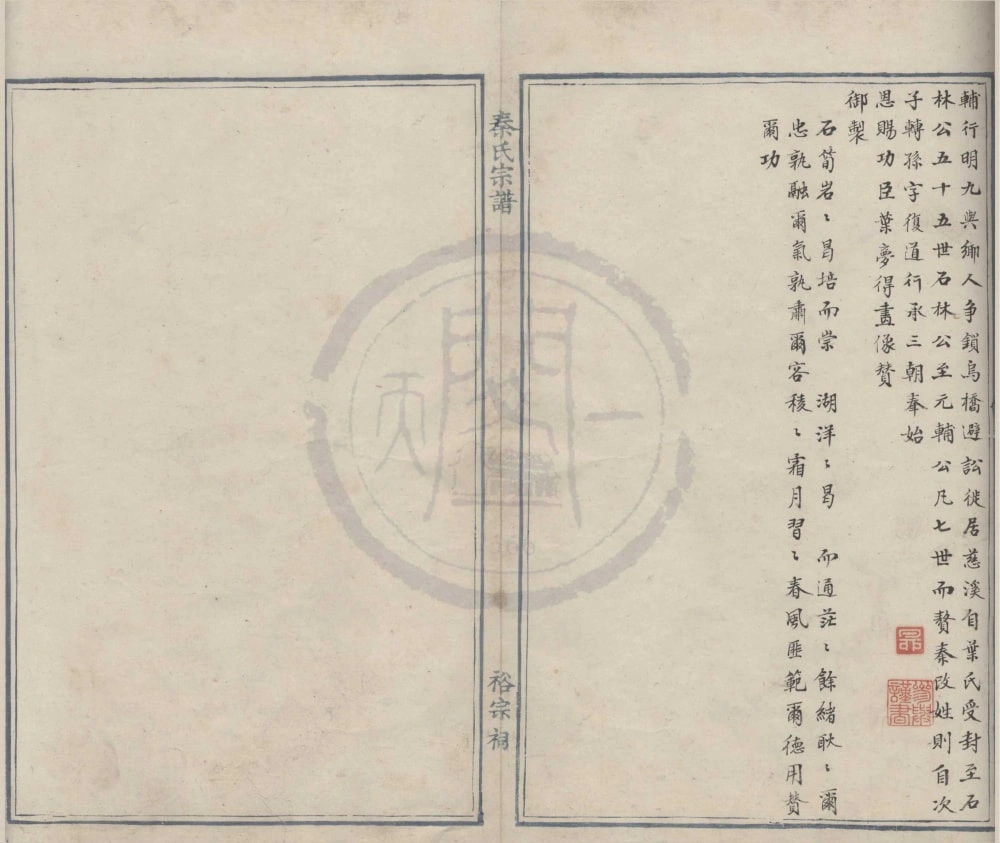 輔行明九與鄉人争鎖烏橋避訟徙居慈溪自葉氏受封至石
林公五十五世石林公至元輔公凡七世而贅秦改姓則自次
子轉孫字復道行承三朝奉始
恩賜功臣葉夢得畫像贊
御製
石荀岩〻曷培而崇 湖洋〻曷 而通茫〻餘緒耿〻爾
忠孰融爾氣孰肅爾容稜〻霜月習〻春風匪範爾德用贊
爾功
秦氏宗譜
裕宗祠
天一閣